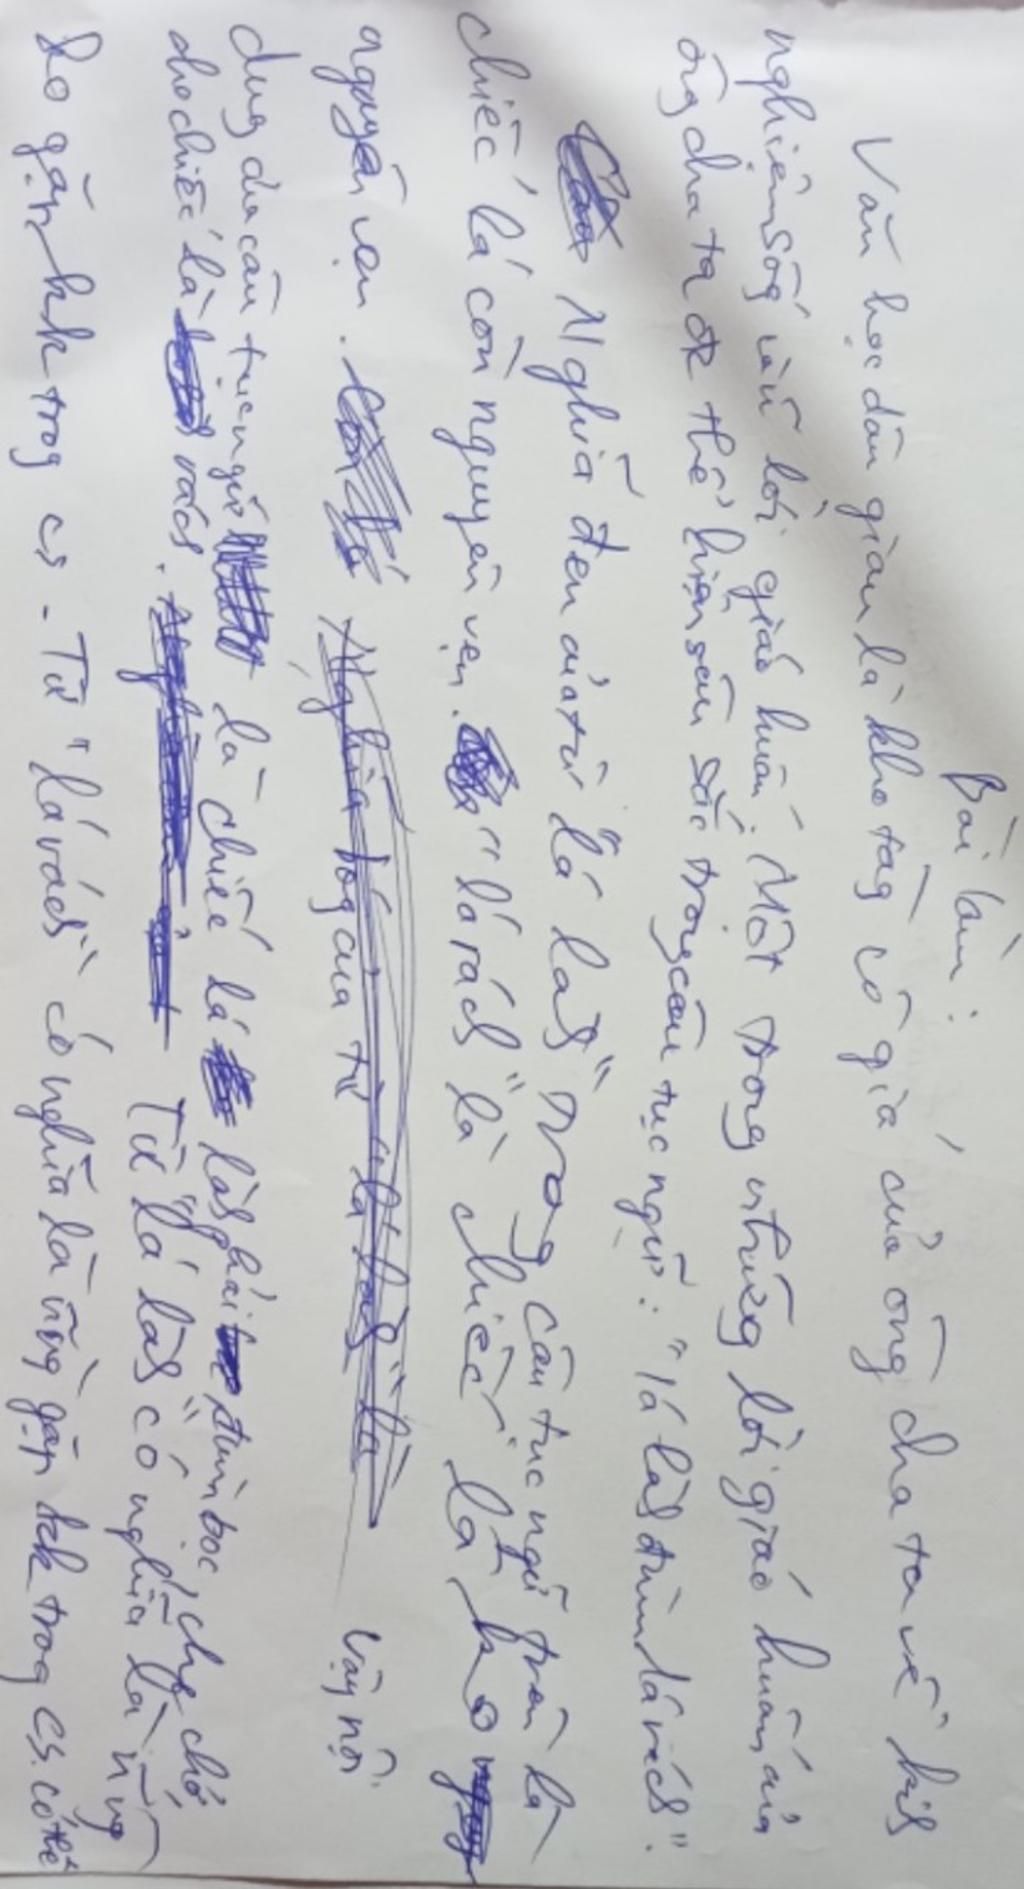 Bài làm:
Văn học dân gian là kho tàg có giá của ông cha ta về kih
nghiệm sốg và lời giáo huấn. Một trong nhữg lời giáo huấn của
ôg cha ta đc thể hiện sâu sắc trong câu tục ngữ: "lá làh đùm lá rách".
Nghĩa đen của từ "lá làh" trong câu tục ngữ trên là
chiếc lá còn nguyên vẹn. "lá rách" là chiếc lá ko
nguyên vẹn. Vậy nội
dung của câu tục ngữ là chiếc lá làh phải đùm bọc, che chở
cho chiếc lá rách. Từ "lá làh" có nghĩa là nhữg
ko gặp khk trog cs. Từ "lá rách" có nghĩa là nhữg gặp khk trog cs. có thể